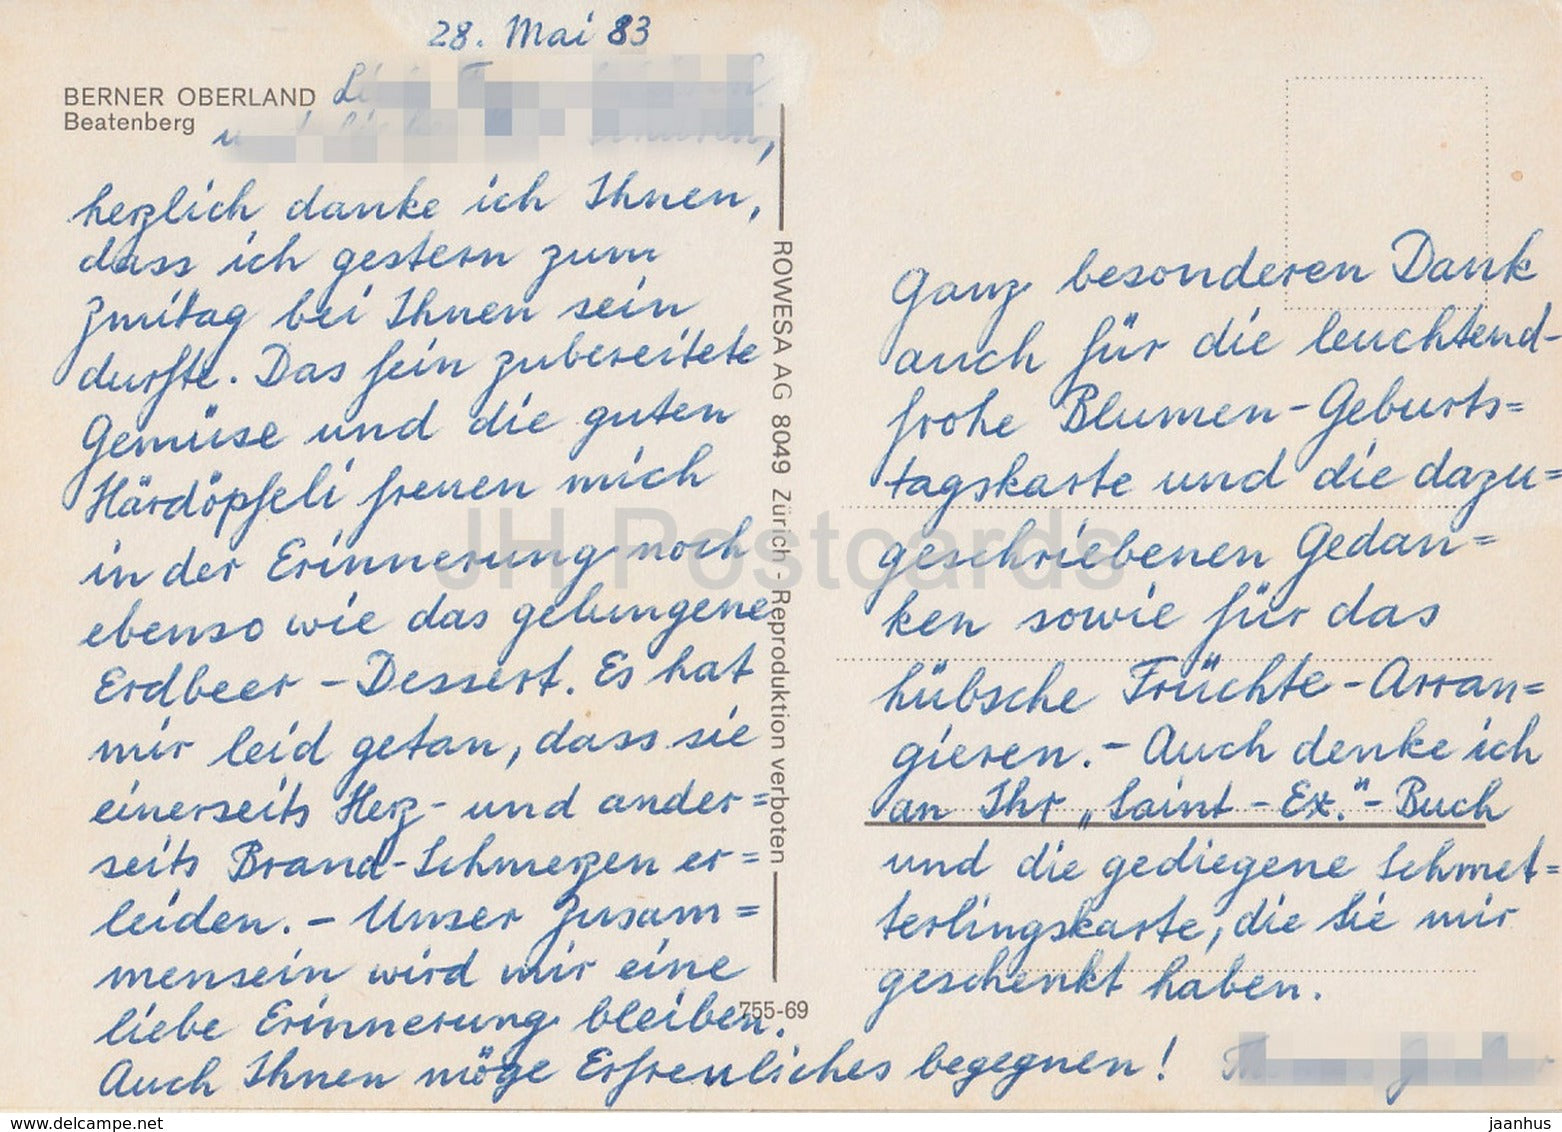 28. Mai 83
BERNER OBERLAND
Beatenberg
herzlich danke ich Ihnen,
dass ich gestern zum
Zmitag bei Ihnen sein
durfte. Das fein zubereitete
Gemüse und die guten
Härdöpfeli freuen mich
in der Erinnerung noch
ebenso wie das gelungene
Erdbeer-Dessert. Es hat
mir leid getan, dass sie
einerseits Herz- und ander=
seits Brand-Schmerzen er=
leiden. – Unser Zusam=
mensein wird mir eine
liebe Erinnerung bleiben.
Auch Ihnen möge Erfreuliches begegnen!
ROWESA AG 8049 Zürich - Reproduktion verboten
755-69
Ganz besonderen Dank
auch für die leuchtend-
frohe Blumen-Geburts=
tagskarte und die dazu=
geschriebenen Gedan=
ken sowie für das
hübsche Früchte-Arran=
gieren. – Auch denke ich
an Ihr „Saint-Ex."-Buch
und die gediegene Schmet=
terlingskarte, die Sie mir
geschenkt haben.
JH Postcards
www.delcampe.net
jaanhus